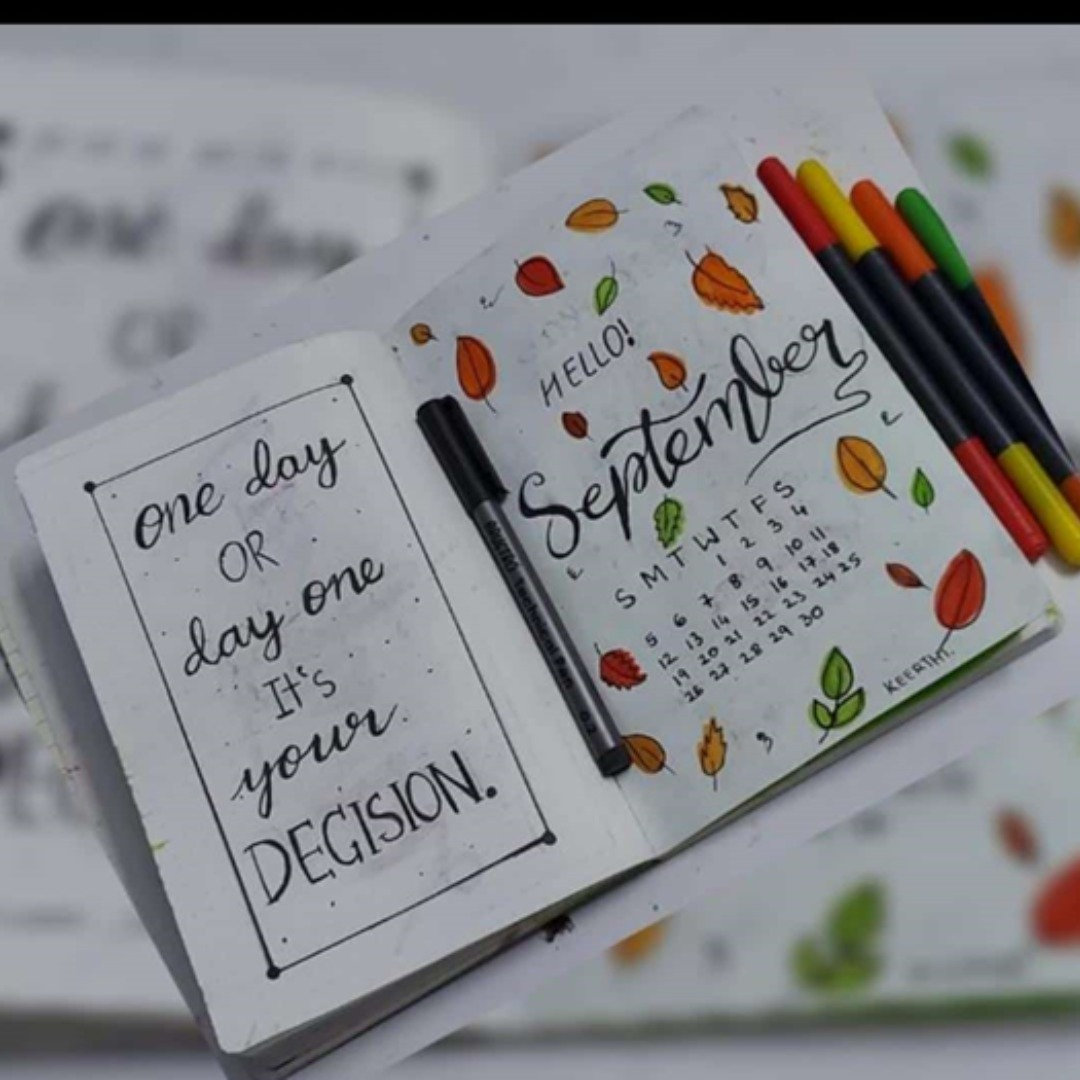 one day
OR
day one
It's
your
DECISION.
HELLO!
September
S M T W T F S
1 2 3 4
5 6 7 8 9 10 11
12 13 14 15 16 17 18
19 20 21 22 23 24 25
26 27 28 29 30
KEERTHI.
Technical Pen